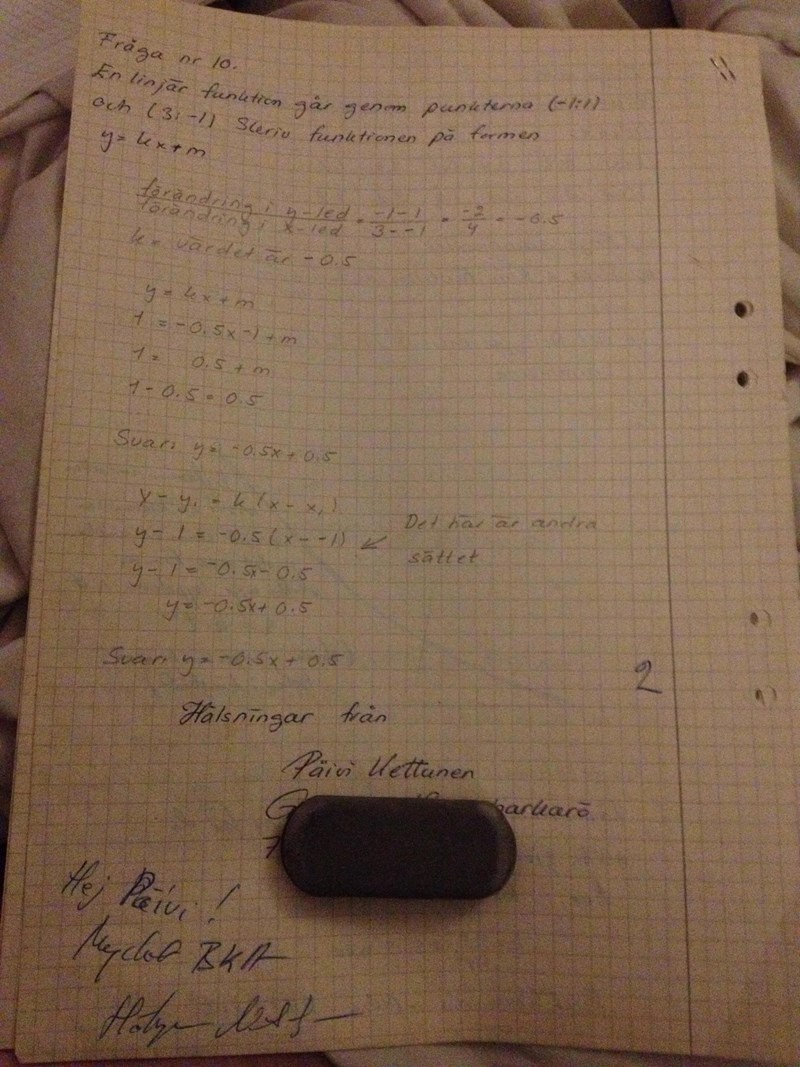 11
Fråga nr 10.
En linjär funktion går genom punkterna (-1;1)
och (3; -1) Skriv funktionen på formen
y= kx+m
förändring i y-led / förändring i x-led = -1-1 / 3--1 = -2 / 4 = -0.5
k= värdet är -0.5
y= kx+m
1 = -0.5x-1+m
1= 0.5+m
1-0.5=0.5
Svar: y= -0.5x+0.5
y-y₁ = k(x-x₁)
y-1 = -0.5(x--1) ↙ Det här är andra
sättet
y-1 = -0.5x-0.5
y= -0.5x+0.5
Svar: y= -0.5x+0.5
2
Hälsningar från
Päivi Kettunen
Hej Päivi!
Mycket BRA